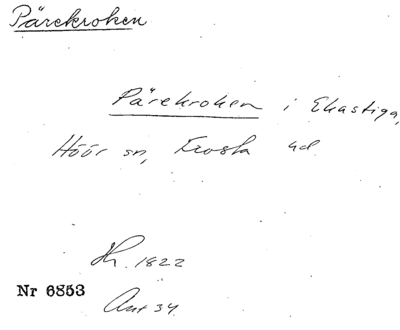 Pärekroken
Pärekroken i Ekastiga,
Höör sn, Frosta hd
Hr. 1822
Nr 6853
Ant 34